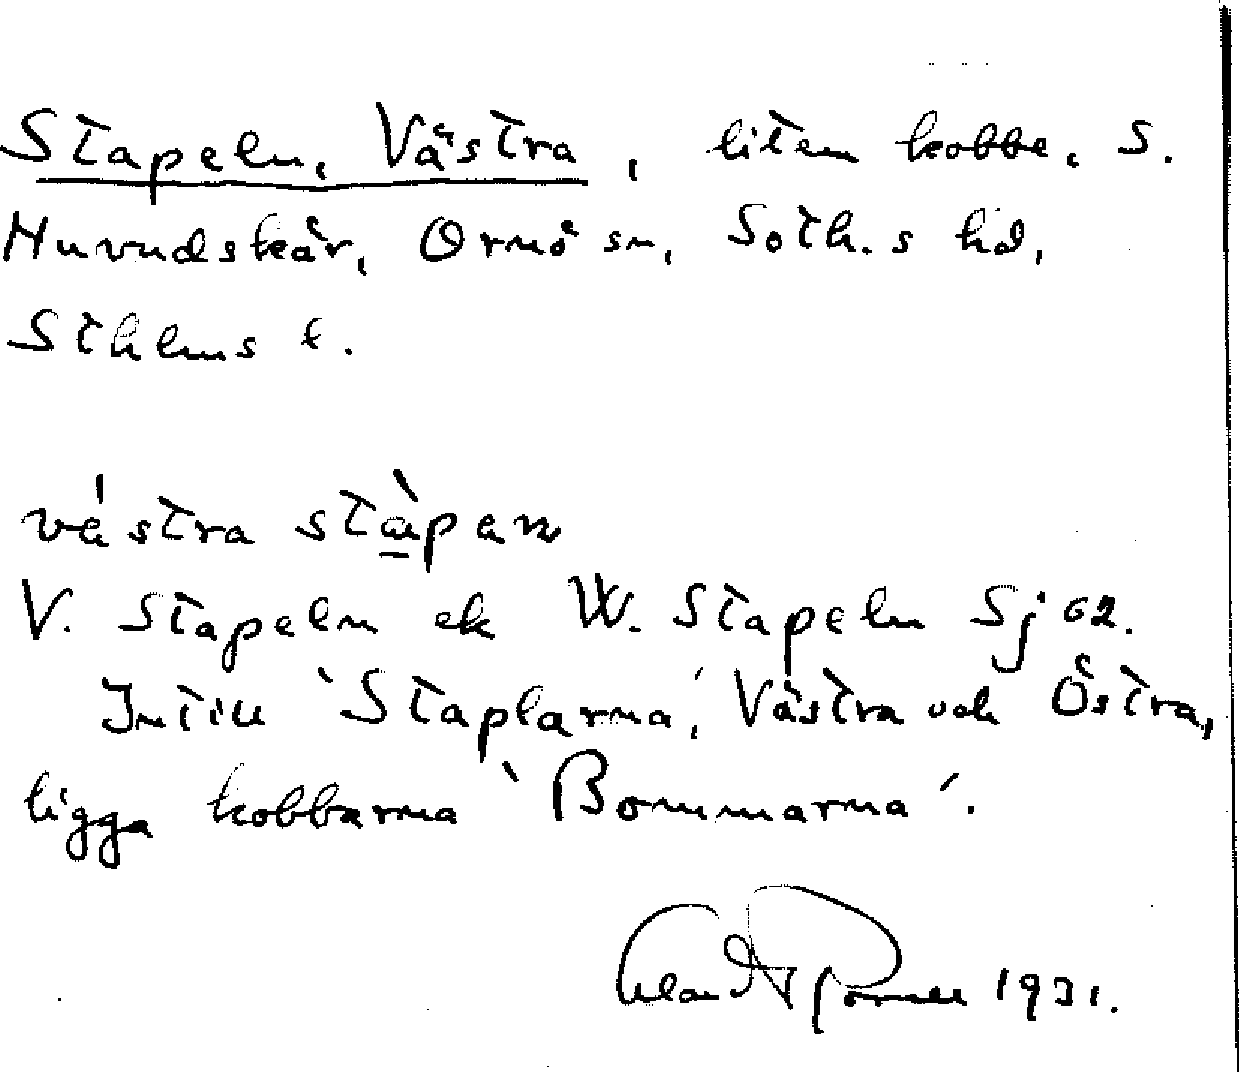 Stapeln, Västra, liten kobbe, S.
Huvudskär, Ornö sn, Soth.s hd,
Sthlms l.
västra stàpen
V. Stapeln ek W. Stapeln Sj 62.
Intill `Staplarna´, Västra och Östra,
ligga kobbarna `Bommarna´.
1931.